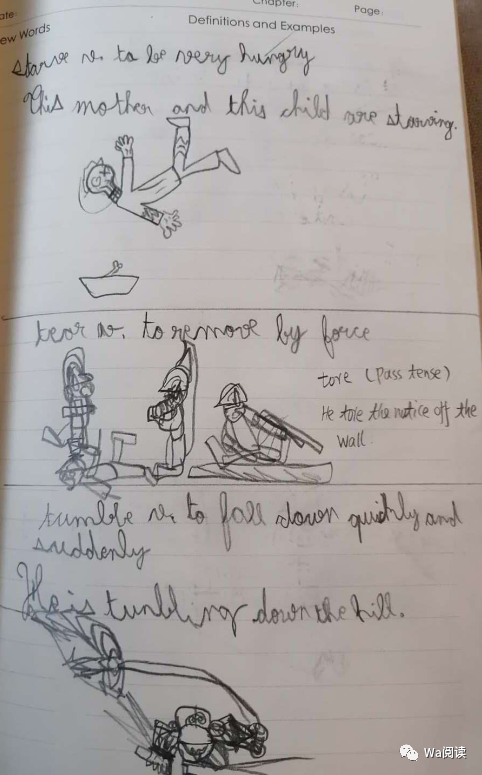 ate:
Chapter:
Page:
ew Words
Definitions and Examples
starve v. to be very hungry
This mother and this child are starving.
tear v. to remove by force
tore (Pass tense)
He tore the notice off the
wall.
tumble v. to fall down quickly and
suddenly
He is tumbling down the hill.
Wa阅读